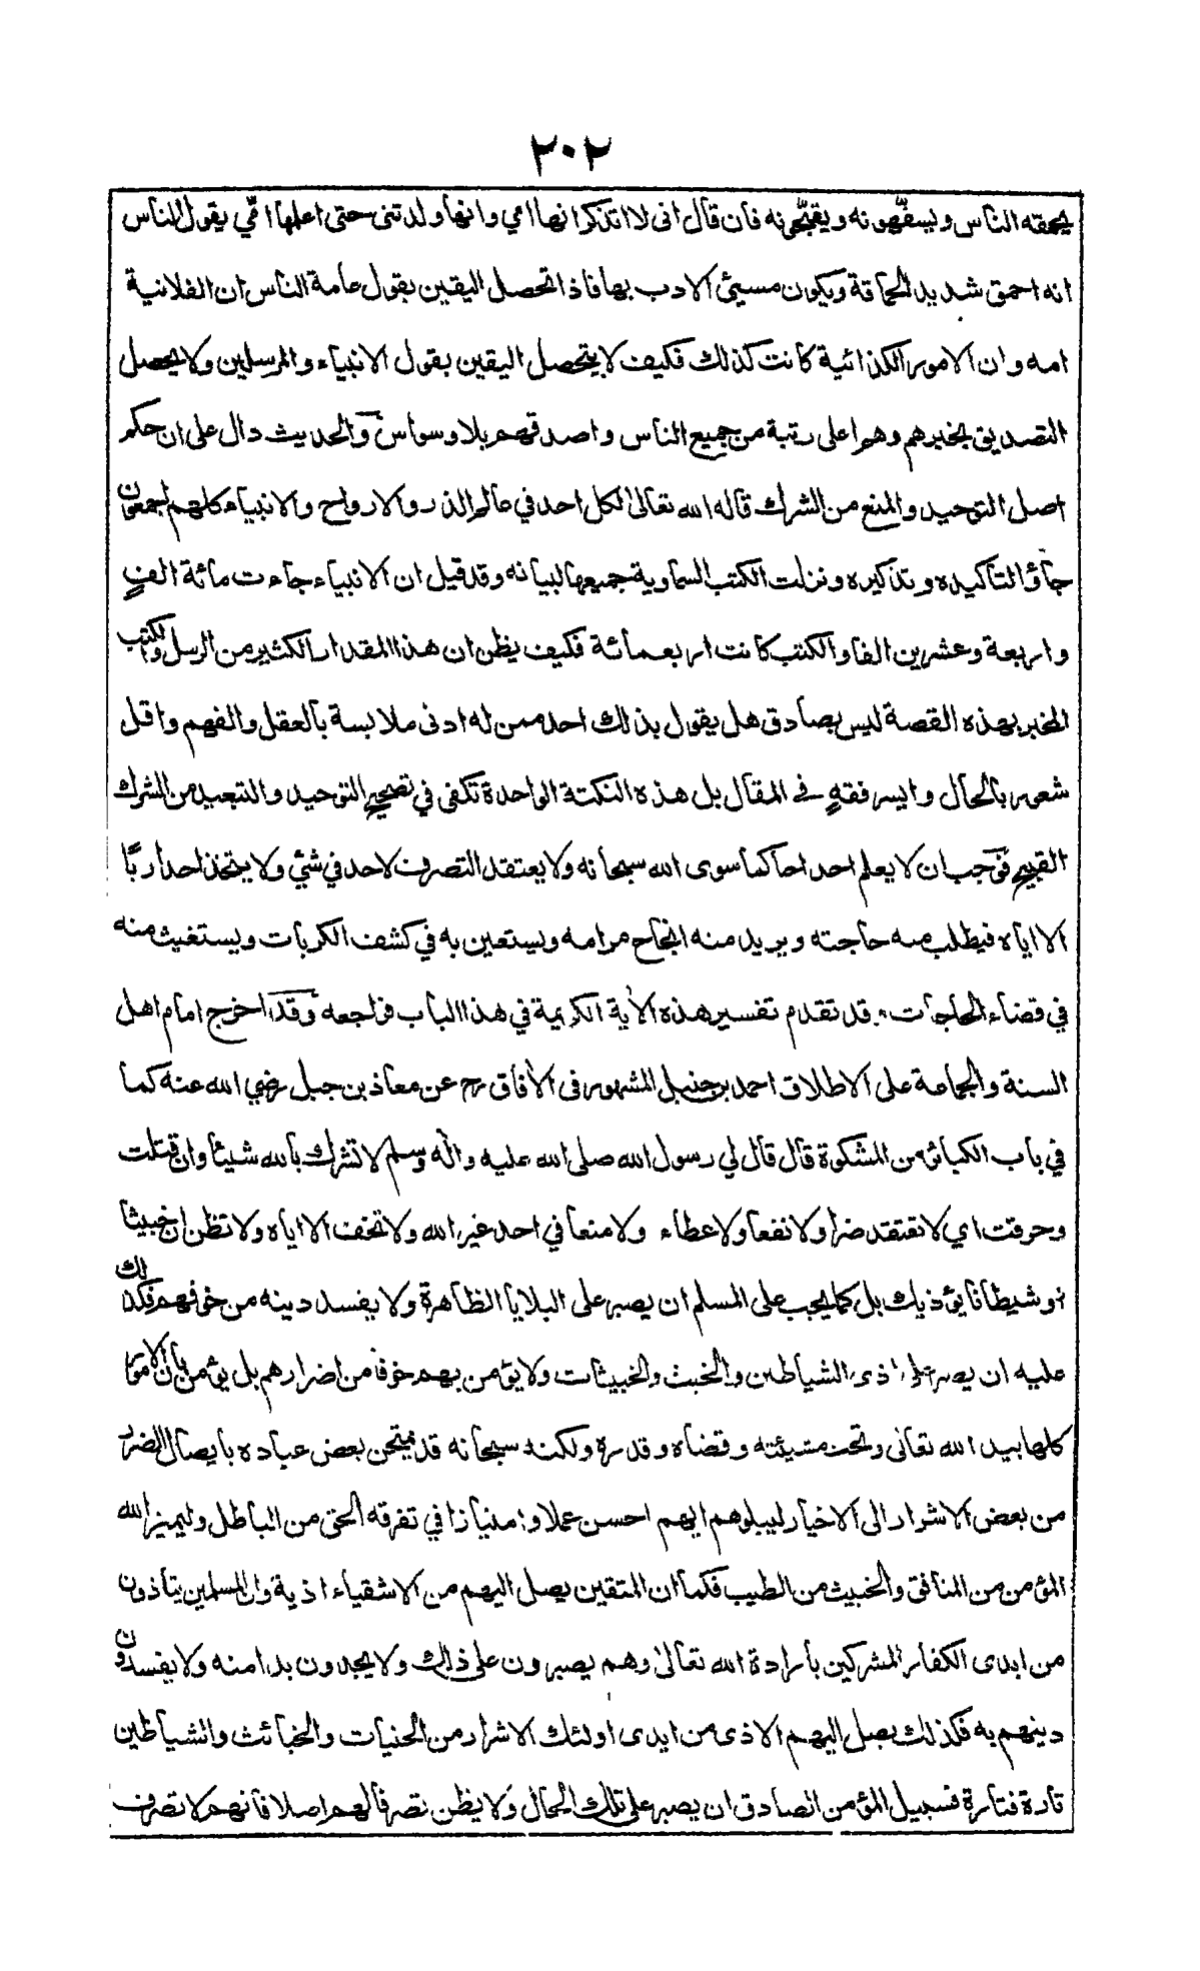 ٢٠٢
يحمقه الناس ويسفهونه ويقبحونه فان قال انى لا اتذكر انها امي وانها ولدتنى حتى اعلمها امّي يقول الناس
انه احمق شديد الحماقة ويكون مسيئ الادب بها فاذا تحصل اليقين بقول عامة الناس ان الفلانية
امه وان الامور الكذائية كانت كذلك فكيف لا يتحصل اليقين بقول الانبياء والمرسلين ولا يحصل
التصديق بخبرهم وهو اعلى رتبة من جميع الناس واصدقهم بلا وسواس والحديث دال على ان حكم
اصل التوحيد والمنع من الشرك قاله الله تعالى لكل احد في عالم الذر والارواح والانبياء كلهم اجمعون
جاؤا لتاكيده وتذكيره ونزلت الكتب السماوية جميعها لبيانه وقد قيل ان الانبياء جاءت مائة الف
واربعة وعشرين الفا والكتب كانت اربعمائة فكيف يظن ان هذا المقدار الكثير من الرسل والكتب
المخبر بهذه القصة ليس بصادق هل يقول بذلك احد ممن له ادنى ملابسة بالعقل والفهم واقل
شعور بالحال وايسر فقهٍ في المقال بل هذه النكتة الواحدة تكفى في تصحيح التوحيد والتبعيد من الشرك
القبيح فوجب ان لا يعلم احد احاكما سوى الله سبحانه ولا يعتقد التصرف لاحد في شئ ولا يتخذ احدا ربًا
الا اياه فيطلب منه حاجته ويريد منه انجاح مرامه ويستعين به في كشف الكربات ويستغيث منه
في قضاء الحاجات قد تقدم تفسير هذه الاية الكريمة في هذا الباب فراجعه وقد اخرج امام اهل
السنة والجماعة على الاطلاق احمد بن حنبل المشهور فى الافاق رح عن معاذ بن جبل رضي الله عنه كما
في باب الكبائر من المشكوة قال قال لي رسول الله صلى الله عليه واله وسلم لا تشرك بالله شيئا وان قتلت
وحرقت اي لا تعتقد ضرا ولا نفعا ولا عطاء ولا منعا في احد غير الله ولا تخف الا اياه ولا تظن ان خبيثا
او شيطانا يؤذيك بل كما يجب على المسلم ان يصبر على البلايا الظاهرة ولا يفسد دينه من خوفهم فكذلك
عليه ان يصبر على اذى الشياطين والخبث والخبيثات ولا يؤمن بهم خوفا من اضرارهم بل يؤمن بان الامور
كلها بيد الله تعالى وتحت مشيئته وقضاه وقدره ولكنه سبحانه قد يمتحن بعض عباده بايصال الضرر
من بعض الاشرار الى الاخيار ليبلوهم ايهم احسن عملا وامتيازا في تفرقه الحق من الباطل وليميز الله
المؤمن من المنافق والخبيث من الطيب فكما ان المتقين يصل اليهم من الاشقياء اذية وان المسلمين يتاذون
من ايدى الكفار المشركين بارادة الله تعالى وهم يصبرون على ذلك ولا يجدون بدا منه ولا يفسدون
دينهم به فكذلك يصل اليهم الاذى من ايدى اولئك الاشرار من الجنيات والخبائث والشياطين
تارة فتارة فسبيل المؤمن الصادق ان يصبر على تلك الحال ولا يظن تصرفا لهم اصلا فانهم لا تصرف